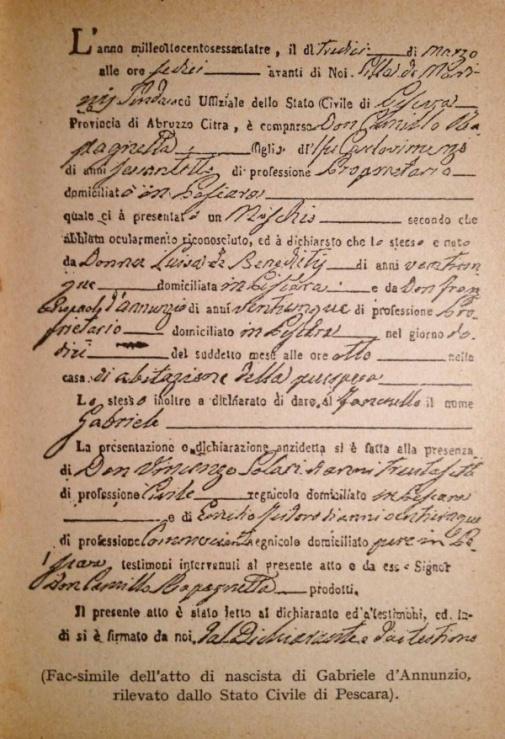 L'anno milleottocentosessantatre, il dì tredici di marzo
alle ore sedici avanti di Noi. Silla de Mari-
nis Sindaco ed Uffiziale dello Stato Civile di Pescara
Provincia di Abruzzo Citra, è comparso Don Camillo Ra-
pagnetta figlio di
di anni di professione Proprietario
domiciliato in Pescara
quale ci à presentato un Maschio secondo che
abbiam ocularmente riconosciuto, ed à dichiarato che lo stesso e nato
da Donna Luisa de Benedictis di anni venticin-
que domiciliata in Pescara e da Don Fran-
cesopaolo d'annunzio di anni venticinque di professione Pro-
prietario domiciliato in Pescara nel giorno do-
dici del suddetto mese alle ore otto nella
casa di abitazione della puerpera
Lo stesso inoltre a dichiarato di dare al fanciullo il nome
Gabriele
La presentazione o dichiarazione anzidetta si è fatta alla presenza
di Don Vincenzo Solari di anni trentasette
di professione Civile regnicolo domiciliato in Pescara
e di Emidio Isidoro di anni venticinque
di professione Commerciante regnicolo domiciliato pure in Pe-
scara testimoni intervenuti al presente atto e da esso Signor
Don Camillo Rapagnetta prodotti.
Il presente atto è stato letto al dichiarante ed a' testimoni, ed in-
di si è firmato da noi, dal Dichiarante e dai testimo
(Fac-simile dell'atto di nascista di Gabriele d'Annunzio,
rilevato dallo Stato Civile di Pescara).